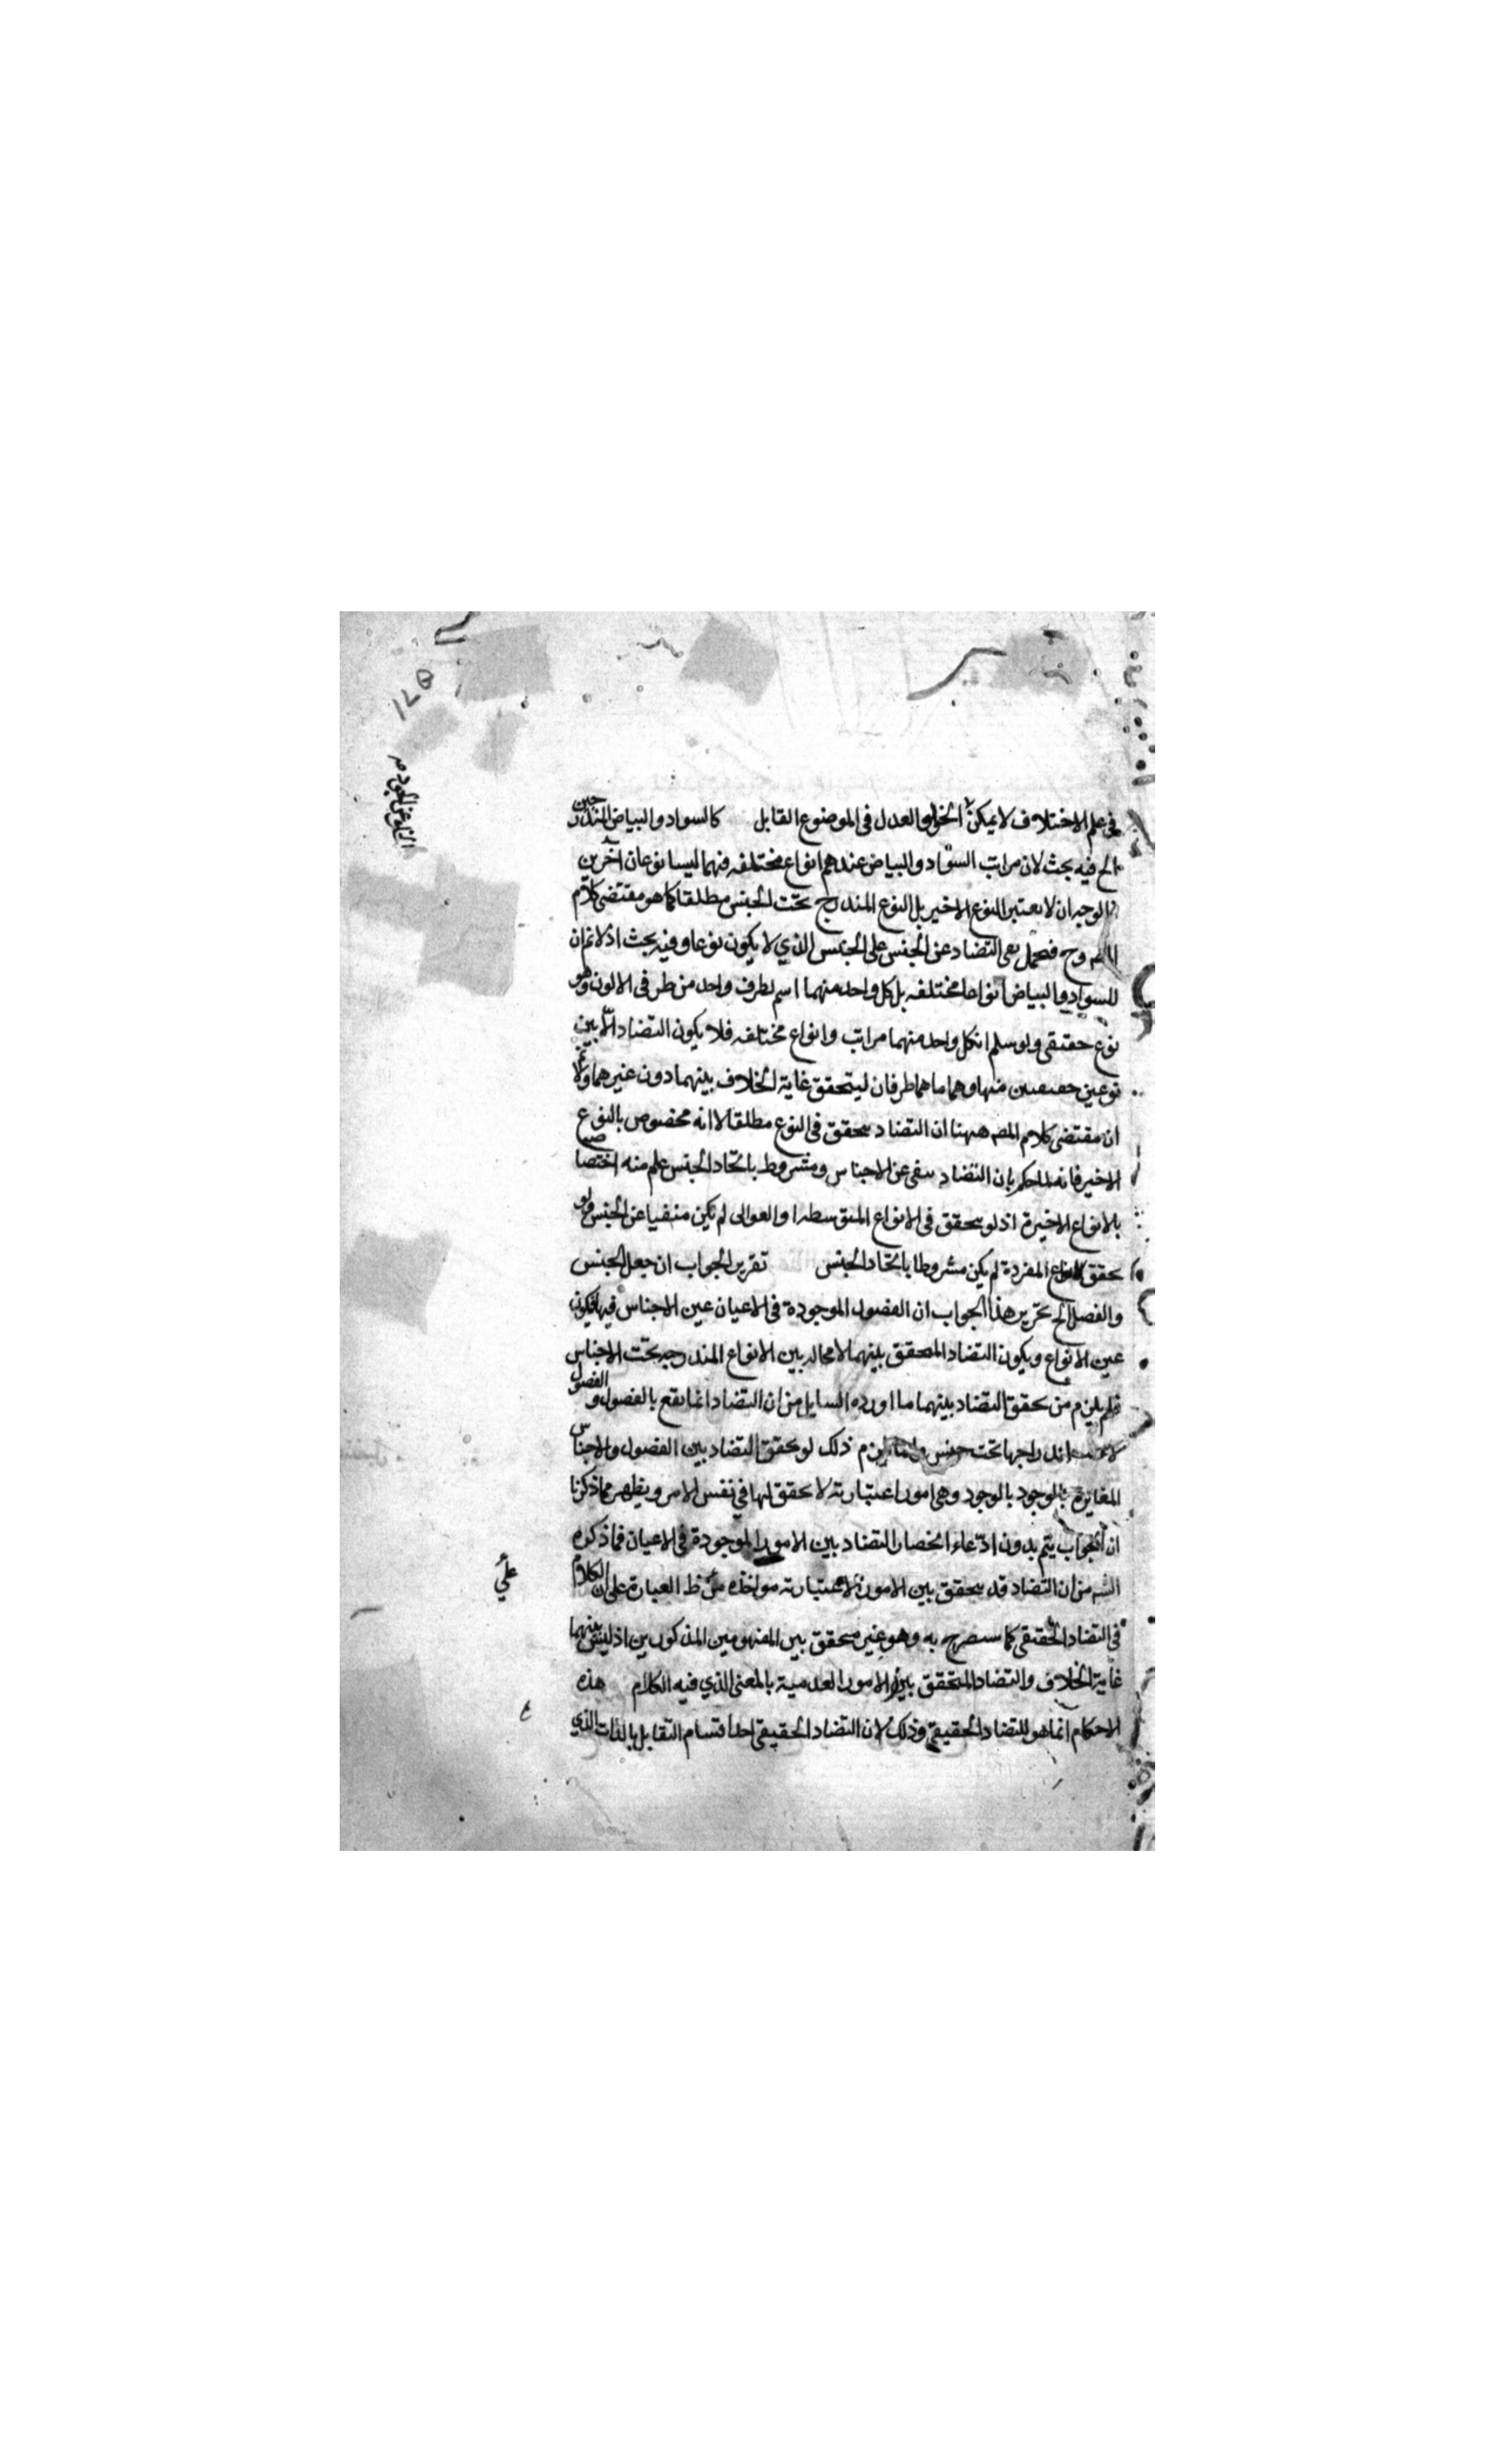 في علم الاختلاف لا يمكن الخلو والعدل في الموضوع القابل كالسواد والبياض المندرجين
الخ فيه بحث لان مراتب السواد والبياض عندهم انواع مختلفه فهما ليسا نوعان آخرين
والوجه ان لا يعتبر النوع الاخير بل النوع المندرج تحت الجنس مطلقا كما هو مقتضى كلام
وح فيحمل نفي التضاد عن الجنس على الجنس الذي لا يكون نوعا وفيه بحث اذ لا نم ان
للسواد والبياض انواعا مختلفه بل كل واحد منهما اسم لطرف واحد من طرفي الالون وهو
نوع حقيقي ولو سلم ان كل واحد منهما مراتب وانواع مختلفه فلا يكون التضاد الا بين
نوعين حقيقيين منها وهما ما هما طرفان ليتحقق غاية الخلاف بينهما دون غيرهما ولا نم
ان مقتضى كلام المصه ههنا ان التضاد يتحقق في النوع مطلقا لا انه مخصوص بالنوع
الاخير فانه لما حكم بان التضاد ينفي عن الاجناس ومشروط باتحاد الجنس علم منه اختصاصه
بالانواع الاخيرة اذ لو يتحقق في الانواع المتوسطه او العوالي لم تكن منفيا عن الجنس ولو
تحقق المفردة لم يكن مشروطا باتحاد الجنس تقرير الجواب ان جعل الجنس
والفصل الخ تحرير هذا الجواب ان الفصول الموجودة في الاعيان عين الاجناس فيها فيكون
عين الانواع ويكون التضاد المتحقق بينهما لا محاله بين الانواع المندرجه تحت الاجناس
فلم يلزم من تحقق التضاد بينهما ما اورده السايل من ان التضاد انما يقع بالفصول والفصول
لا اندراجها تحت جنس وانما يلزم ذلك لو تحقق التضاد بين الفصول والاجناس
المغايرة بالوجود بالوجود وهي امور اعتباريه لا تحقق لها في نفس الامر ويظهر مما ذكرنا
ان الجواب يتم بدون ادعاء انحصار التضاد بين الامور الموجودة في الاعيان فما ذكره
الشه من ان التضاد قد يتحقق بين الامور الاعتباريه مواخذه من ظ العبارة على ان الكلام
في التضاد الحقيقي كما سيصرح به وهو غير متحقق بين المفهومين المذكورين اذ ليس بينهما
غاية الخلاف والتضاد المتحقق بين الامور العدمية بالمعنى الذي فيه الكلام هذه
الاحكام انما هو للتضاد الحقيقي وذلك لان التضاد الحقيقي احد اقسام التقابل بالذات الذي
علي